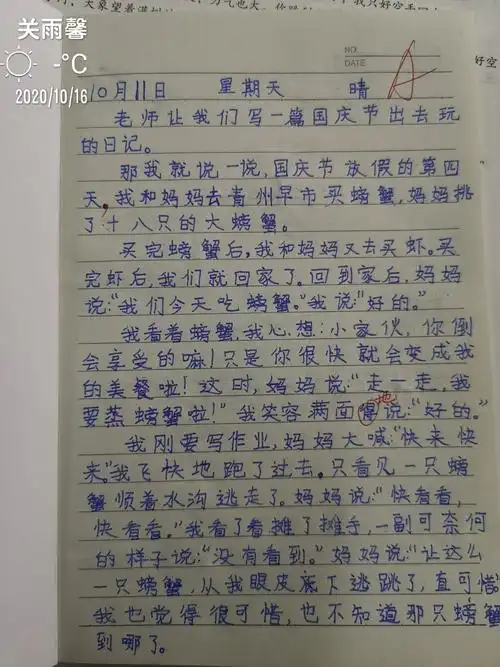 关雨馨
-°C
2020/10/16
我只好空手回
好空
NO.
DATE
A
10月11日 星期天 晴
老师让我们写一篇国庆节出去玩
的日记。
那我就说一说,国庆节放假的第四
天,我和妈妈去青州早市买螃蟹,妈妈挑
了十八只的大螃蟹。
买完螃蟹后,我和妈妈又去买虾。买
完虾后,我们就回家了。回到家后,妈妈
说:“我们今天吃螃蟹。”我说:“好的。”
我看着螃蟹,我心想:小家伙,你倒
会享受的嘛!只是你很快就会变成我
的美餐啦!这时,妈妈说:“走一走,我
要蒸螃蟹啦!”我笑容两面得地说:“好的。”
我刚要写作业,妈妈大喊:“快来快
来。”我飞快地跑了过去。只看见一只螃
蟹顺着水沟逃走了。妈妈说:“快看看,
快看看。”我看了看摊了摊手,一副可奈何
的样子说:“没有看到。”妈妈说:“让这么
一只螃蟹,从我眼皮底下逃跳了,直可惜。
我也觉得很可惜,也不知道那只螃蟹
到哪了。